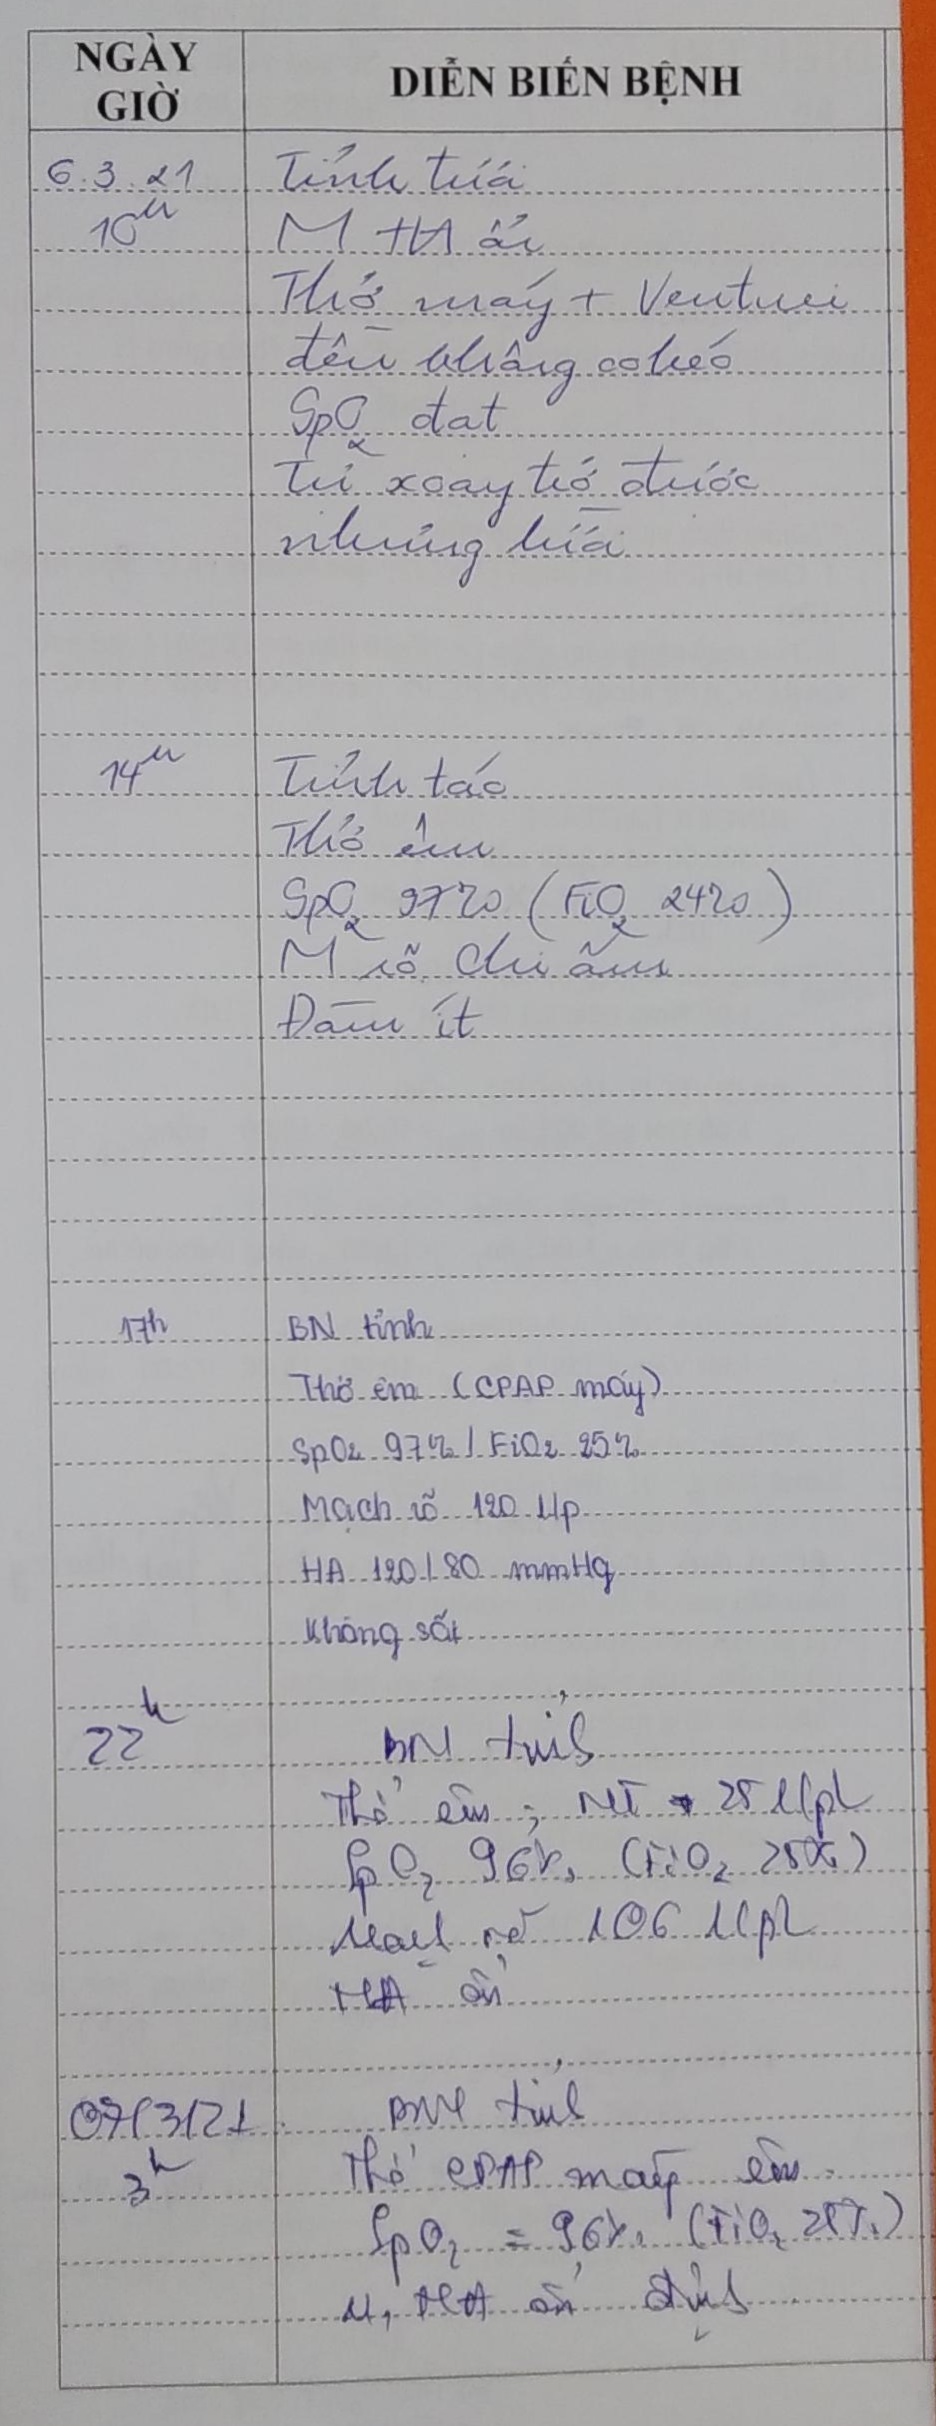 NGÀY GIỜ
DIỄN BIẾN BỆNH
6.3.21
Tỉnh
10H
M HA ổn
Thở máy + Venturi
đều không co kéo
SpO2 đạt
Tự xoay trở được
nhưng
14H
Tỉnh táo
Thở êm
SpO2 97% (FiO2 24%)
M rõ chi ấm
Đàm ít
17h
BN tỉnh
Thở êm (CPAP máy)
SpO2 97% / FiO2 25%
Mạch rõ 120 l/p
HA 120/80 mmHg
Không sốt
22h
BN tỉnh
Thở êm; NT 25 l/ph
SpO2 96% (FiO2 25%)
Mạch rõ 106 l/ph
HA ổn
07/3/21
BN tỉnh
3h
Thở CPAP máy êm
SpO2 = 96% (FiO2 25%)
M, HA ổn định